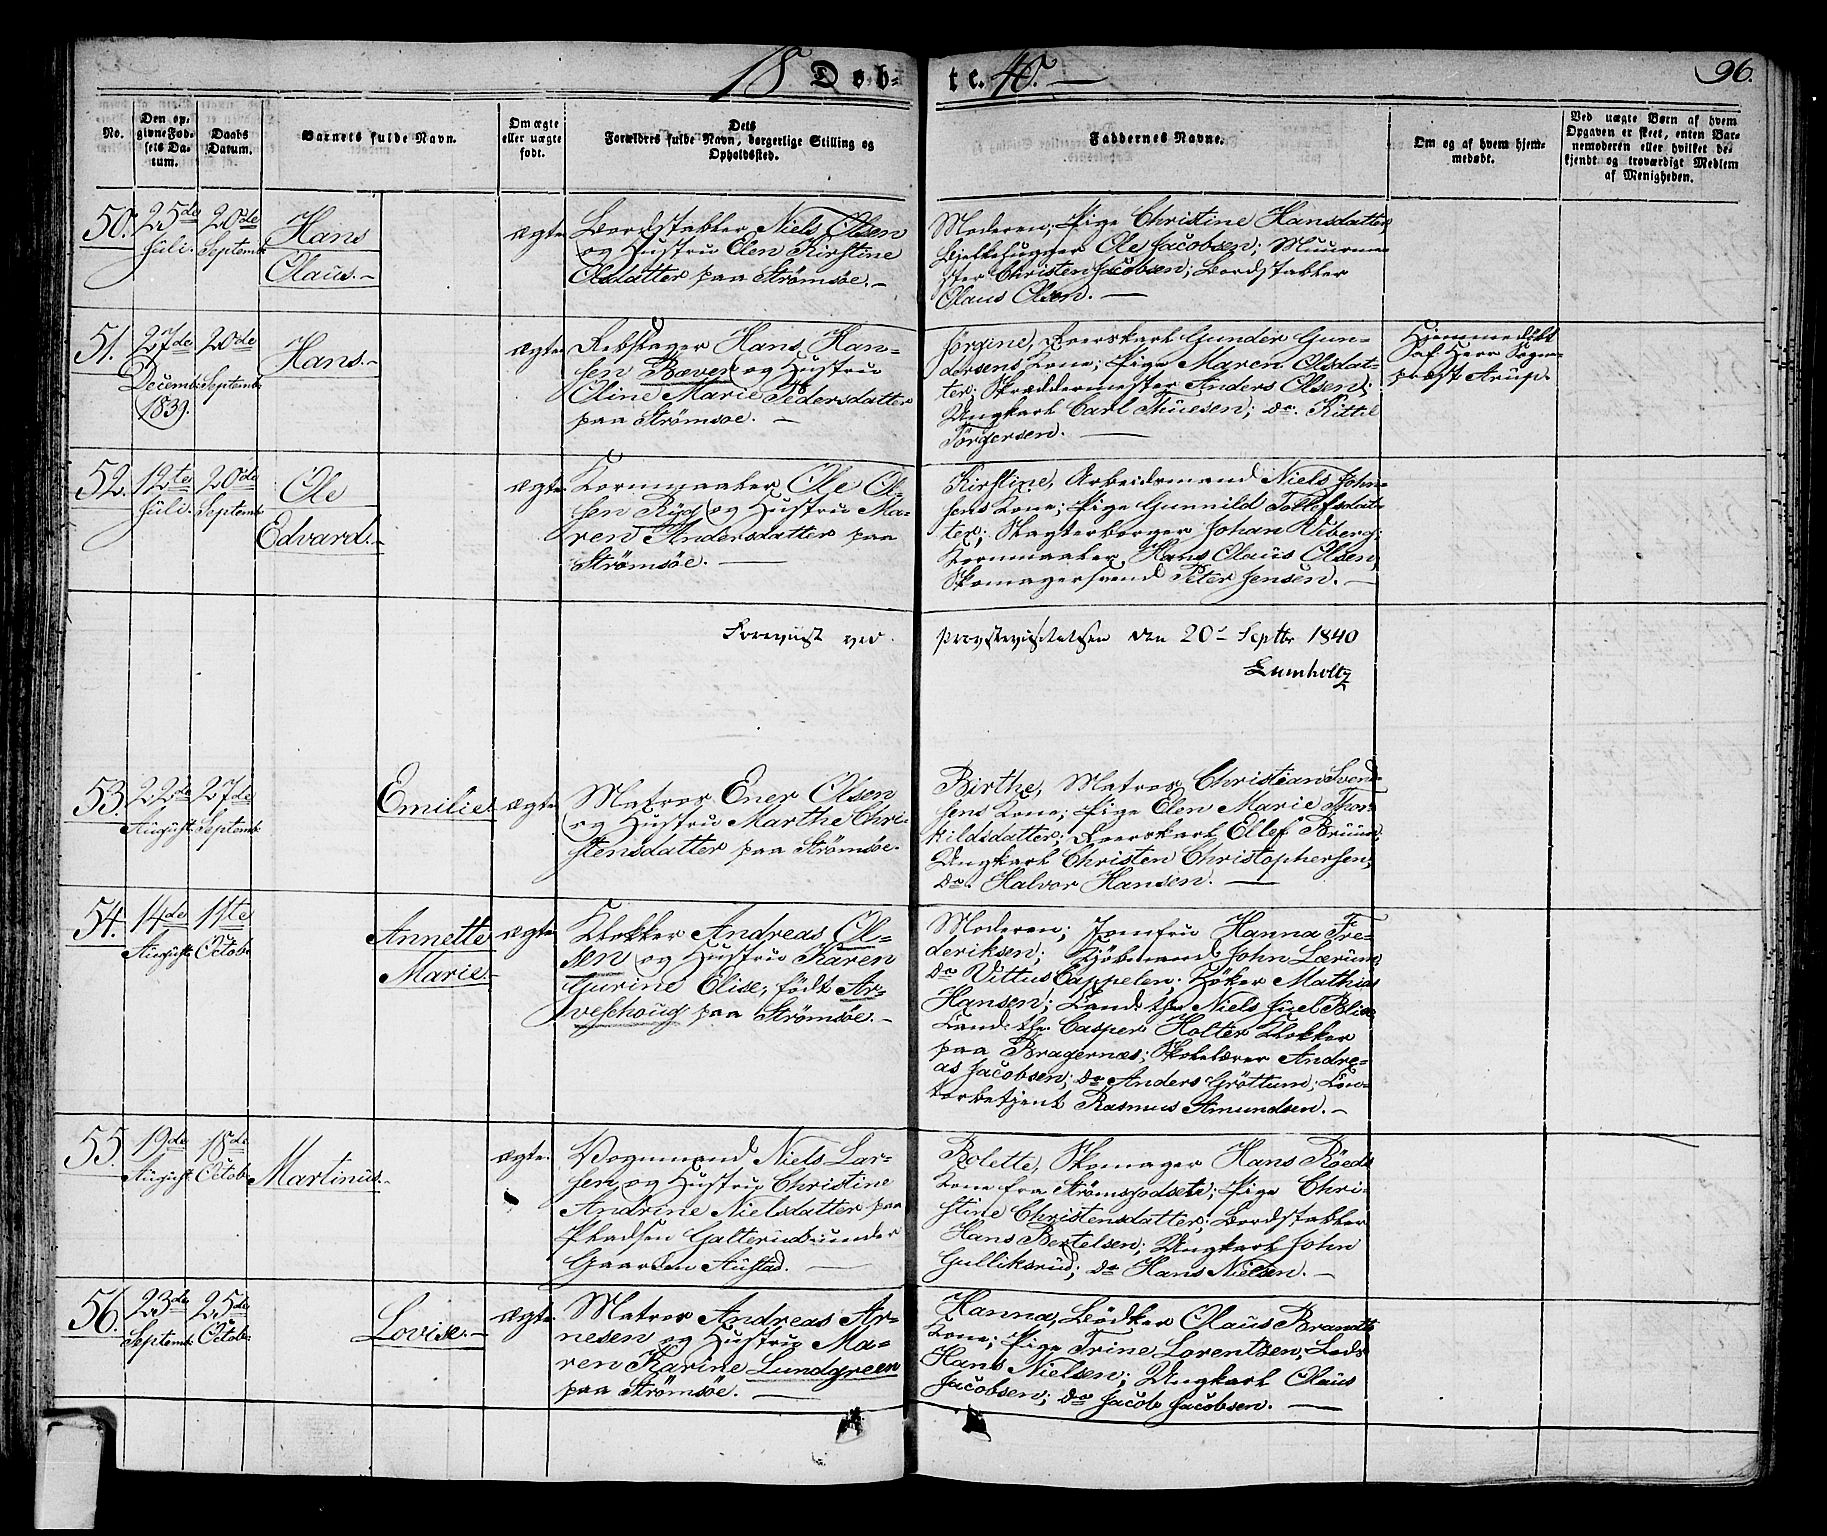 18 Døb-
te. 40. —
96.
No.
Den op-
givne Fød-
sels Da-
tum.
Daabs
Datum.
Barnets fulde Navn.
Om ægte
eller uægte
født.
Dets
Forældres fulde Navn, borgerlige Stilling og
Opholdssted.
Faddernes Navne.
Om og af hvem hjem-
medøbt.
Ved uægte Børn af hvem
Opgaven er skeet, enten Bar-
nemoderen eller hvilket be-
kjendt og troværdigt Medlem
af Menigheden.
50.
25de
Juli.
20de
Septemb:
Hans
Olaus.-
ægte
Bordstabler Niels Olsen
og Hustru Elen Kirstine
Olsdatter paa Strømsøe.-
Moderen; Pige Christine Hansdatter
Bjelkehugger Ole Jacobsen; Muurme-
ster Christen Jacobsen; Bordstabler
Olaus Olsen. —
51.
27de
Decemb:
1839.
20de
Septemb:
Hans.-
ægte
Rebslager Hans Han-
sen Bæver og Hustru
Oline Marie Pedersdatter
paa Strømsøe. -
Jørgine, Everskarl Gunder Gun-
dersens Kone; Pige Maren Olsdat-
ter; Skræddermester Anders Olsen;
Ungkarl Carl Thuesen; do. Kittil
Törgersen. —
Hjemmedøbt
af Herr Sogne-
præst Arup.
52.
12te
Juli.
20de
Septemb:
Ole
Edvard.-
ægte
Kornmaaler Ole Ol-
sen Ryg og Hustru Ma-
ren Andersdatter paa
Strømsöe. —
Kirstine, Arbeidsmand Niels John-
sens Kone; Pige Gunnild Tollefsdat-
ter; Slagterborger Johan Viberg;
Kornmaaler Hans Olaus Olsen,
Skomagersvend Peter Jensen. —
Foreviist ved
Provstevisitatsen den 20de Septbr 1840
Lumholtz
53.
22de
August.
27de
Septemb:
Emilie.
ægte
Matros Ener Olsen
og Hustru Marthe Chri-
stensdatter paa Strømsøe.
Birthe, Matros Christian Svend-
sens Kone; Pige Elen Marie Thor-
kildsdatter; Eversкarl Ellef Bruun
Ungkarl Christen Christophersen,
do. Halvor Hansen. —
54.
14de
August.
11te
Octob:
Annette
Marie.-
ægte
Klokker Andreas Ol-
sen og Hustru Karen
Gurine Elise, født Ar-
veschoug paa Strømsøe.-
Moderen; Jomfru Hanna Fre-
deriksen; Kjöbmand John Lærum,
do Vittus Cappelen; Höker Mathias
Hansen; Niels Juel Blix
Casper Holter Klokker
paa Bragernæs; Skolelærer Andre-
as Jacobsen; do Anders Gröttum; Con-
torbetjent Rasmus Amundsen. -
55.
19de
August.
18de
Octob:
Martinus.-
ægte
Vognmand Niels Lar-
sen og Hustru Christine
Andrine Nielsdatter paa
Pladsen Galterud under
Gaarden Austad. —
Bolette, Skomager Hans Röeds
Kone fra Strömsgodset; Pige Chri-
stine Christensdatter; Bordstabler
Hans Bertelsen; Ungkarl John
Gulliksrud; do Hans Nielsen. -
56.
23de
Septemb:
25de
Octob:
Lovise.-
ægte
Matros Andreas Ar-
nesen og Hustru Ma-
ren Karine Lundgreen
paa Strømsøe. —
Hanna, Bödker Olaus Brandts
Kone; Pige Trine Lorentzen, Lods
Hans Nielsen; Ungkarl Olaus
Jacobsen; do Jacob Jacobsen. —